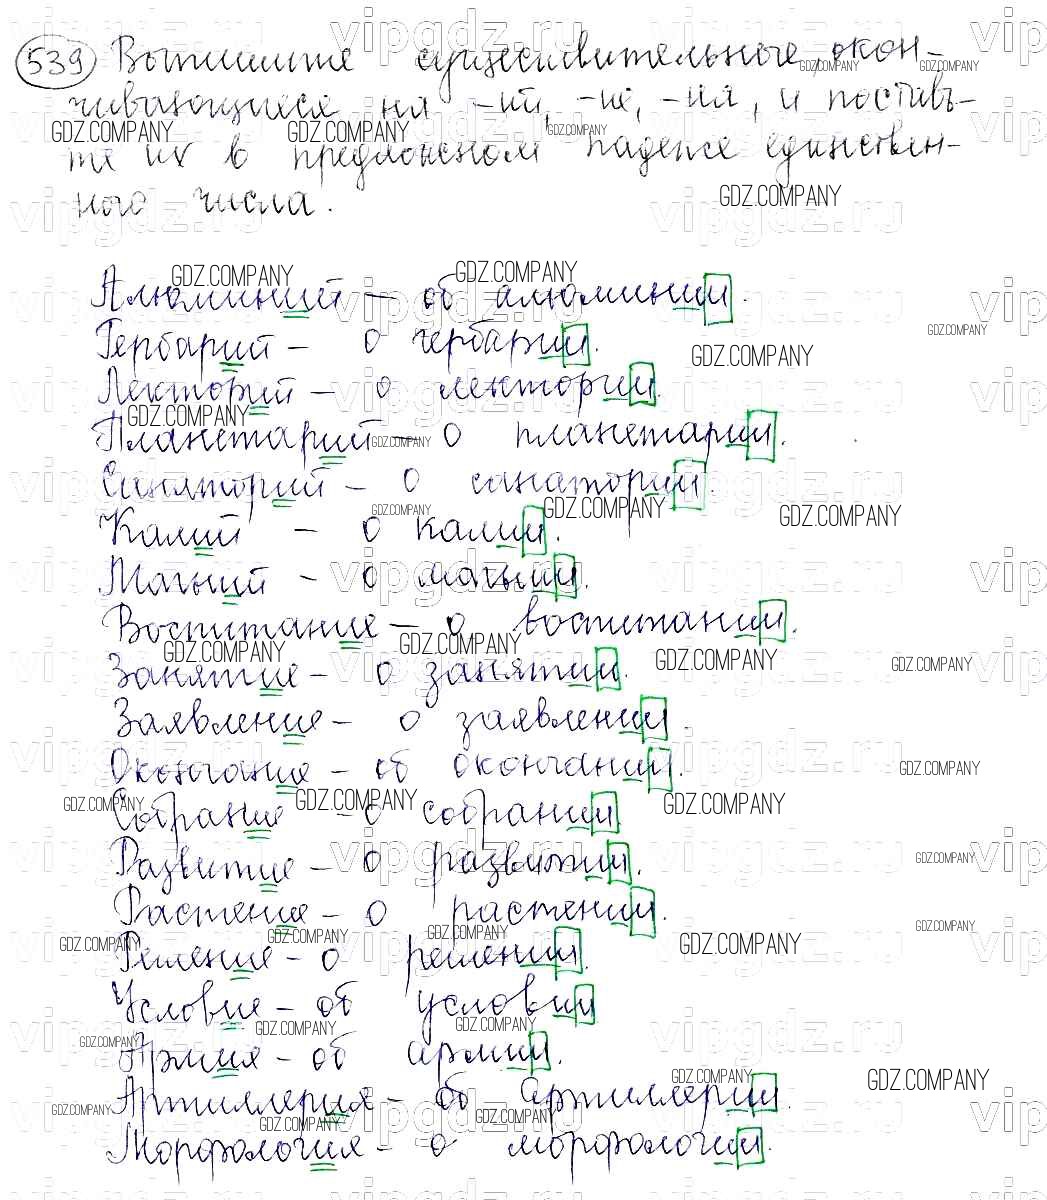 539 Выпишите существительные, окон-
чивающиеся на -ий, -ие, -ия, и поставь-
те их в предложном падеже единствен-
ного числа.
Алюминий – об алюминии.
Гербарий – о гербарии.
Лекторий – о лектории.
Планетарий – о планетарии.
Санаторий – о санатории.
Калий – о калии.
Магний – о магнии.
Воспитание – о воспитании.
Занятие – о занятии.
Заявление – о заявлении
Окончание – об окончании.
Собрание – о собрании
Развитие – о развитии.
Растение – о растении.
Решение – о решении.
Условие – об условии
Армия – об армии.
Артиллерия – об артиллерии.
Морфология – о морфологии.
vipgdz.ru
GDZ.COMPANY